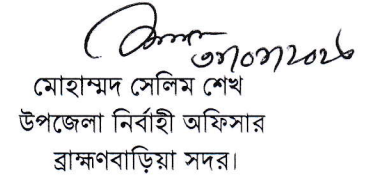 মোহাম্মদ সেলিম শেখ
উপজেলা নির্বাহী অফিসার
ব্রাহ্মণবাড়িয়া সদর।